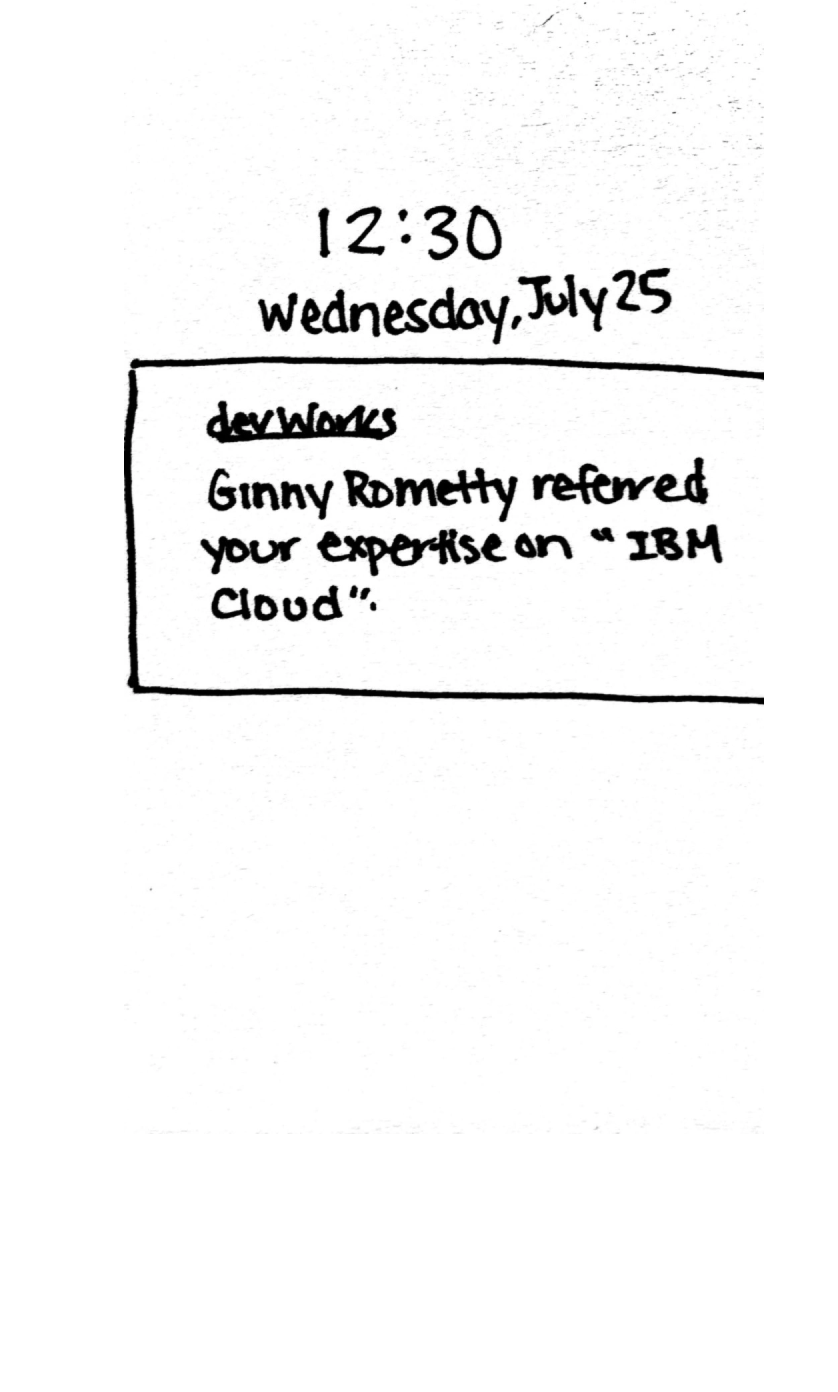 12:30
Wednesday, July 25
devWorks
Ginny Rometty referred
your expertise on "IBM
Cloud".